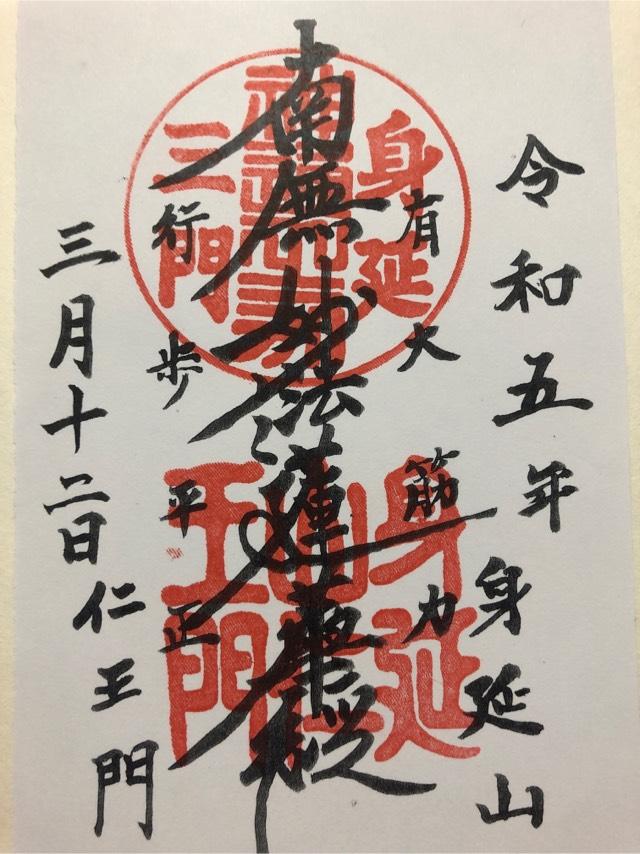 令和五年
身延山
有大筋力
南無妙法蓮華経
行歩平正
三月十二日
仁王門
身延
三門
身延山
王門